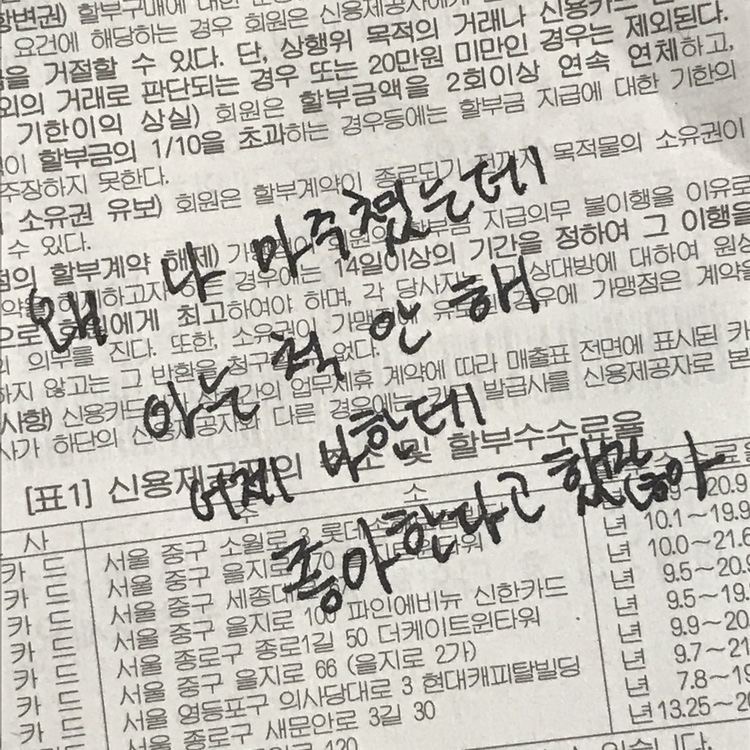 항변권) 할부구매에 대한
요건에 해당하는 경우 회원은 신용제공자에게
을 거절할 수 있다. 단, 상행위 목적의 거래나 신용카드
외의 거래로 판단되는 경우 또는 20만원 미만인 경우는 제외된다.
기한이익 상실) 회원은 할부금액을 2회이상 연속 연체하고,
이 할부금의 1/10을 초과하는 경우등에는 할부금 지급에 대한 기한의
주장하지 못한다.
소유권 유보) 회원은 할부계약이 종료되기 전까지 목적물의 소유권이
수 있다.
점의 할부계약 해제) 지급의무 불이행을 이유로
경우에는 14일이상의 기간을 정하여 그 이행을
으로 에게 최고하여야 하며, 각 당사자는 상대방에 대하여 원상
의무를 진다. 또한, 소유권이 경우에 가맹점은 계약을
하지 않고는 그 반환을 청구 없다.
사항) 신용카드 간의 업무제휴 계약에 따라 매출표 전면에 표시된 카
사가 하단의 신용제공자와 다른 경우에는 발급사를 신용제공자로 본
왜 나 마주쳤는데
아는 척 안 해
어제 나한테
좋아한다고 했잖아
[표1] 신용제공자의 주소 및 할부수수료율
사 주 소 수수료율
카드 서울 중구 소월로 3 롯데손 9~20.9
카드 서울 중구 을지로 170 년 10.1~19.9
카드 서울 중구 세종대 년 10.0~21.6
카드 서울 중구 을지로 100 파인에비뉴 신한카드 년 9.5~20.9
카드 서울 종로구 종로1길 50 더케이트윈타워 년 9.5~19.
카드 서울 중구 을지로 66 (을지로 2가) 년 9.9~20.
카드 서울 영등포구 의사당대로 3 현대캐피탈빌딩 년 9.7~21
카드 서울 종로구 새문안로 3길 30 년 7.8~19
서울 중구 120 년 13.25~2
있습니다